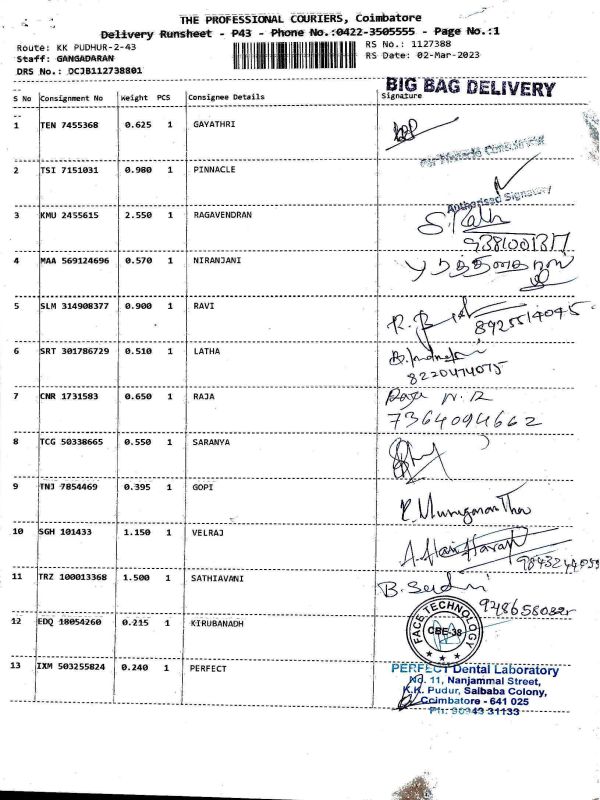 THE PROFESSIONAL COURIERS, Coimbatore
Delivery Runsheet - P43 - Phone No.:0422-3505555 - Page No.:1
Route: KK PUDHUR-2-43
RS No.: 1127388
Staff: GANGADARAN
RS Date: 02-Mar-2023
DRS No.: DCJB112738801
BIG BAG DELIVERY
S No Consignment No Weight PCS Consignee Details Signature
1 TEN 7455368 0.625 1 GAYATHRI
2 TSI 7151031 0.980 1 PINNACLE
Authorised Signatory
3 KMU 2455615 2.550 1 RAGAVENDRAN
4 MAA 569124696 0.570 1 NIRANJANI
5 SLM 314908377 0.900 1 RAVI
8925514045
6 SRT 301786729 0.510 1 LATHA
8220474075
7 CNR 1731583 0.650 1 RAJA
7364094662
8 TCG 50338665 0.550 1 SARANYA
9 TNJ 7854469 0.395 1 GOPI
10 SGH 101433 1.150 1 VELRAJ
11 TRZ 100013368 1.500 1 SATHIAVANI
12 EDQ 18054260 0.215 1 KIRUBANADH
FACE TECHNOLOGY
CBE-38
13 IXM 503255824 0.240 1 PERFECT
PERFECT Dental Laboratory
No. 11, Nanjammal Street,
K.K. Pudur, Saibaba Colony,
Coimbatore - 641 025
Ph: 90943 31133